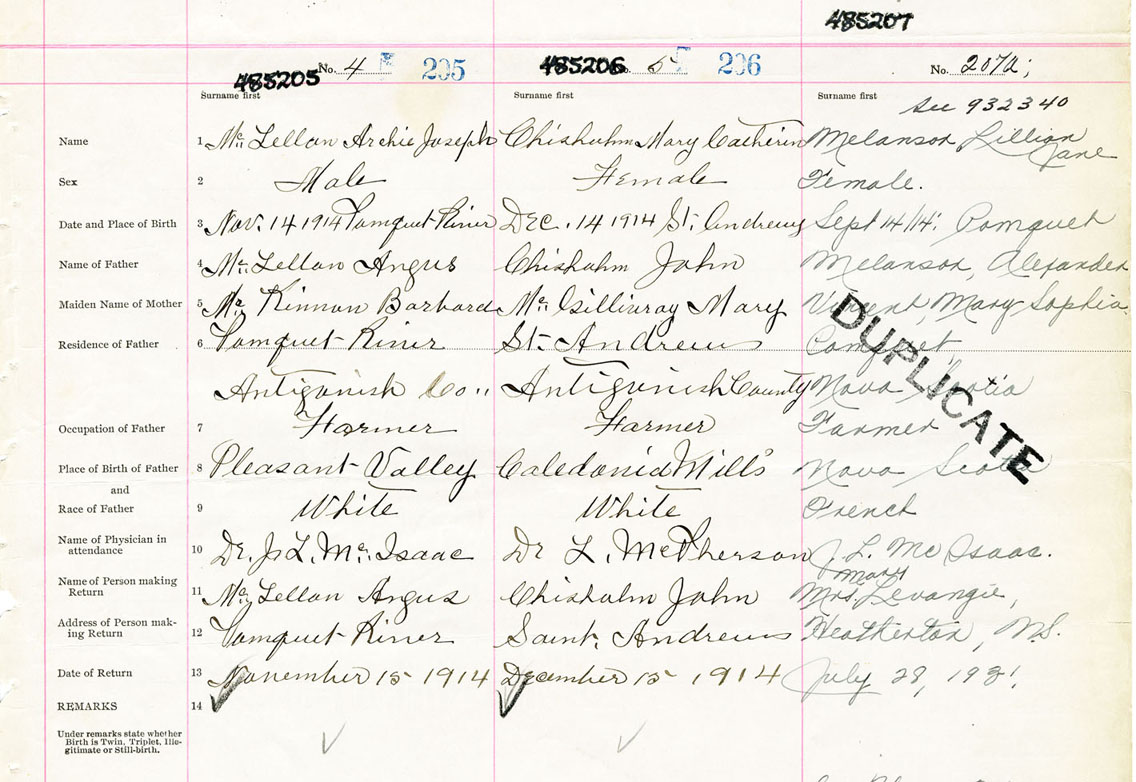 485207
485205 No. 4 205 485206 No. 5 206 No. 207a;
Surname first Surname first Surname first See 932340
Name 1 Mc Lellan Archie Joseph Chisholm Mary Catherin Melanson Lillian Jane
Sex 2 Male Female Female.
Date and Place of Birth 3 Nov. 14 1914 Pomquet River Dec. 14 1914 St. Andrews Sept 14/14. Pomquet
Name of Father 4 Mc Lellan Angus Chisholm John Melanson, Alexander
Maiden Name of Mother 5 Mc Kinnon Barbara Mc Gillivray Mary Vincent, Mary Sophia
Residence of Father 6 Pomquet River St. Andrews Pomquet,
Antigonish Co., Antigonish County Nova Scotia
DUPLICATE
Occupation of Father 7 Farmer Farmer Farmer
Place of Birth of Father 8 Pleasant Valley Caledonia Mills Nova Scotia
and
Race of Father 9 White White French
Name of Physician in
attendance 10 Dr. J. L. Mc Isaac Dr L. McPherson J. L. Mc Isaac.
Name of Person making
Return 11 Mc Lellan Angus Chisholm John Mrs. Mary Levangie,
Address of Person mak-
ing Return 12 Pomquet River Saint Andrews Heatherton, N.S.
Date of Return 13 November 15 1914 December 15 1914 July 28, 1931.
REMARKS 14
Under remarks state whether
Birth is Twin, Triplet, Ille-
gitimate or Still-birth.